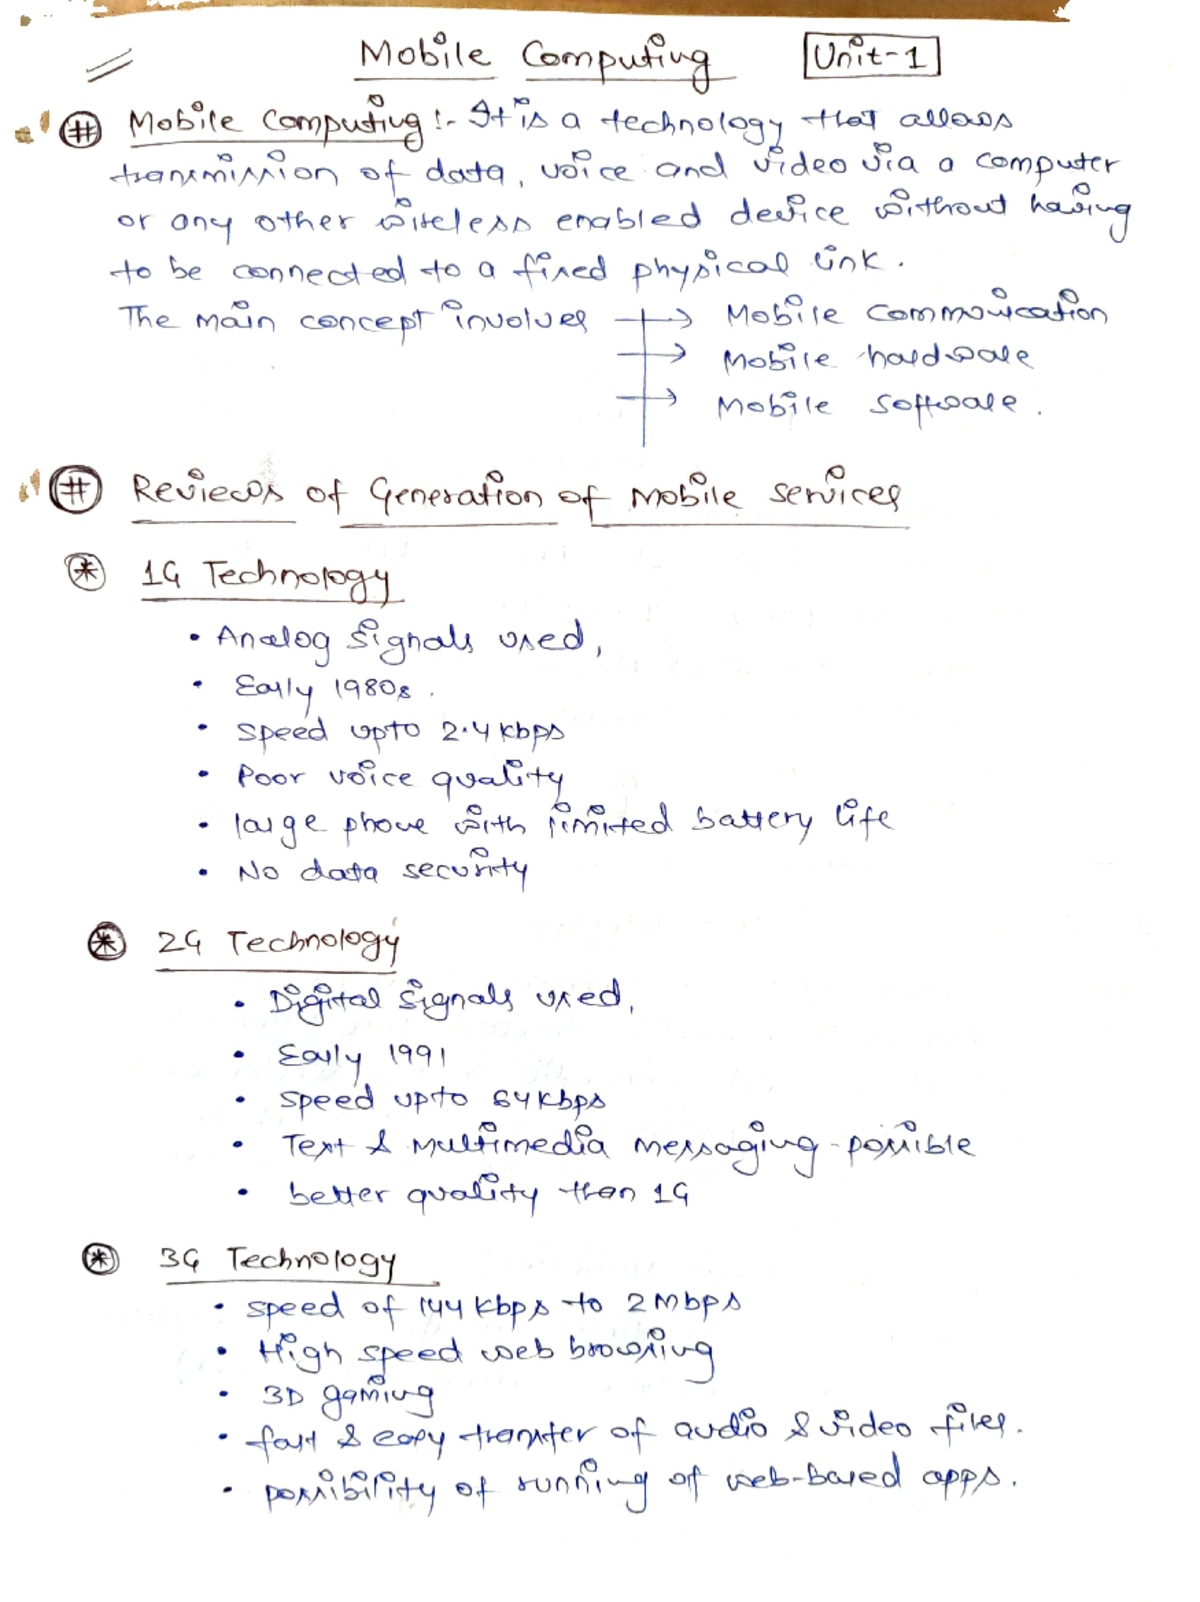 Mobile Computing Unit-1
# Mobile Computing :- It is a technology that allows
transmission of data, voice and video via a computer
or any other wireless enabled device without having
to be connected to a fixed physical link.
The main concept involves → Mobile Communication
→ Mobile hardware
→ Mobile software.
# Reviews of Generation of Mobile Services
* 1G Technology
• Analog Signals used,
• Early 1980s.
• speed upto 2.4 kbps
• Poor voice quality
• large phone with limited battery life
• No data security
* 2G Technology
• Digital Signals used,
• Early 1991
• speed upto 64 kbps
• Text & Multimedia messaging possible
• better quality than 1G
* 3G Technology
• speed of 144 kbps to 2 Mbps
• High speed web browsing
• 3D gaming
• fast & easy transfer of audio & video files.
• possibility of running of web-based apps.